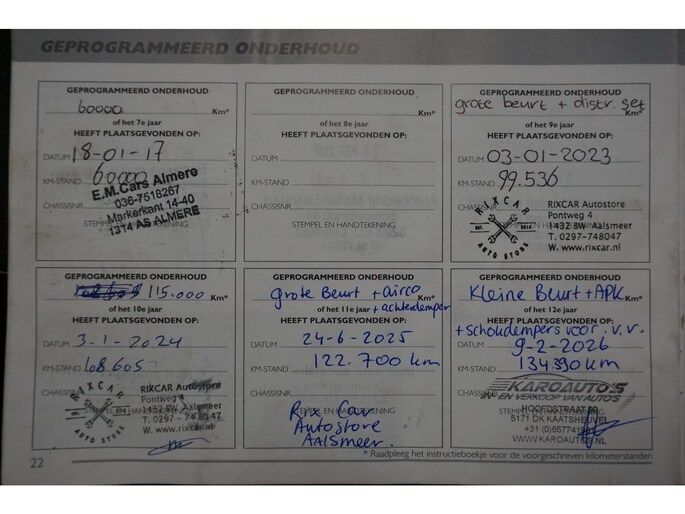 GEPROGRAMMEERD ONDERHOUD
GEPROGRAMMEERD ONDERHOUD
60000 Km*
of het 7e jaar
HEEFT PLAATSGEVONDEN OP:
DATUM 18-01-17
KM-STAND 60000
CHASSISNR.
STEMPEL EN
E.M.Cars Almere
036-7518267
Markerkant 14-40
1314 AS ALMERE
GEPROGRAMMEERD ONDERHOUD
Km*
of het 8e jaar
HEEFT PLAATSGEVONDEN OP:
DATUM
KM-STAND
CHASSISNR.
STEMPEL EN HANDTEKENING
GEPROGRAMMEERD ONDERHOUD
grote beurt + distr. set
Km*
of het 9e jaar
HEEFT PLAATSGEVONDEN OP:
DATUM 03-01-2023
KM-STAND 99.536
CHASSISNR.
RIXCAR
AUTO STORE
RIXCAR Autostore
Pontweg 4
1432 BW Aalsmeer
T. 0297-748047
W. www.rixcar.nl
GEPROGRAMMEERD ONDERHOUD
115.000 Km*
of het 10e jaar
HEEFT PLAATSGEVONDEN OP:
DATUM 3-1-2024
KM-STAND 108.605
CHASSISNR.
RIXCAR
AUTO STORE
RIXCAR Autostore
Pontweg 4
1432 BW Aalsmeer
T. 0297 - 748047
W. www.rixcar.nl
GEPROGRAMMEERD ONDERHOUD
grote Beurt + airco
Km*
of het 11e jaar + achterdemper
HEEFT PLAATSGEVONDEN OP:
DATUM 24-6-2025
KM-STAND 122.700 km
CHASSISNR.
STEMPEL EN HANDTEKENING
Rix Car
Autostore
Aalsmeer.
GEPROGRAMMEERD ONDERHOUD
Kleine Beurt + APK
Km*
of het 12e jaar
HEEFT PLAATSGEVONDEN OP:
+ schokdempers voor. v.v.
DATUM 9-2-2026
KM-STAND 134.390km
CHASSISNR.
KAROAUTO'S
IN- EN VERKOOP VAN AUTO'S
HOOFDSTRAAT
5171 DK KAATSHEUVEL
WWW.KAROAUTOS.NL
22
* Raadpleeg het instructieboekje voor de voorgeschreven kilometerstanden